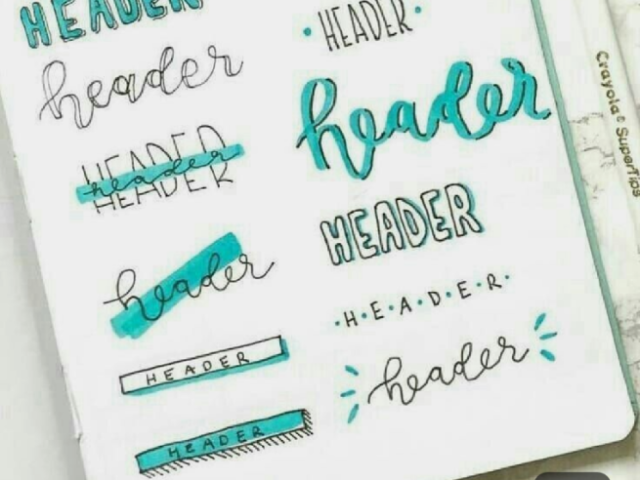 HEADER
header
HEADER
header
header
HEADER
HEADER
·HEADER·
header
HEADER
·H·E·A·D·E·R·
header
Crayola® SuperTips